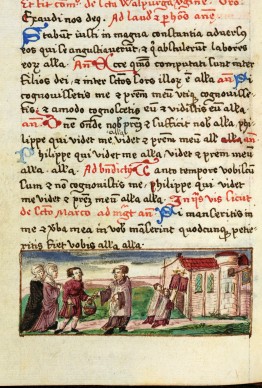 Et fit com̄. de scta Walpurga v̄gine. Vr̄o
Exaudi nos deg. Ad laud̄ z p̄hor̄ an̄e
Stabūt iusti in magna constantia aduersus
eos qui se angustiauerūt: z q̄ abstulerūt labores
eoꝝ alla. An̄ Ecce quō computati sunt inter
filios dei: z inter sctos sors illoꝝ ē alla an̄
cognouissetis me z prēm meū vtiq̄ cognouisse-
tis: z amodo cognoscetis eū z vidistis eū alla
an̄ Dn̄e onde nob prēz z sufficit nob alla. phi-
alla
lippe qui videt me videt z prēm meū alla an̄
Philippe qui videt me alla videt z prēm meū
alla. alla. Ad bn̄dictꝰ Tanto tempore vobiscū
sum z nō cognouistis me philippe qui videt
me videt z prēz meū alla alla. In ij̄s vs̄ sicut
de scto Marco. ad mgt̄ an̄ Si manseritis in
me z v̄ba mea in vob māserint quodcunq̄ petie-
ritis fiet vobis alla alla.